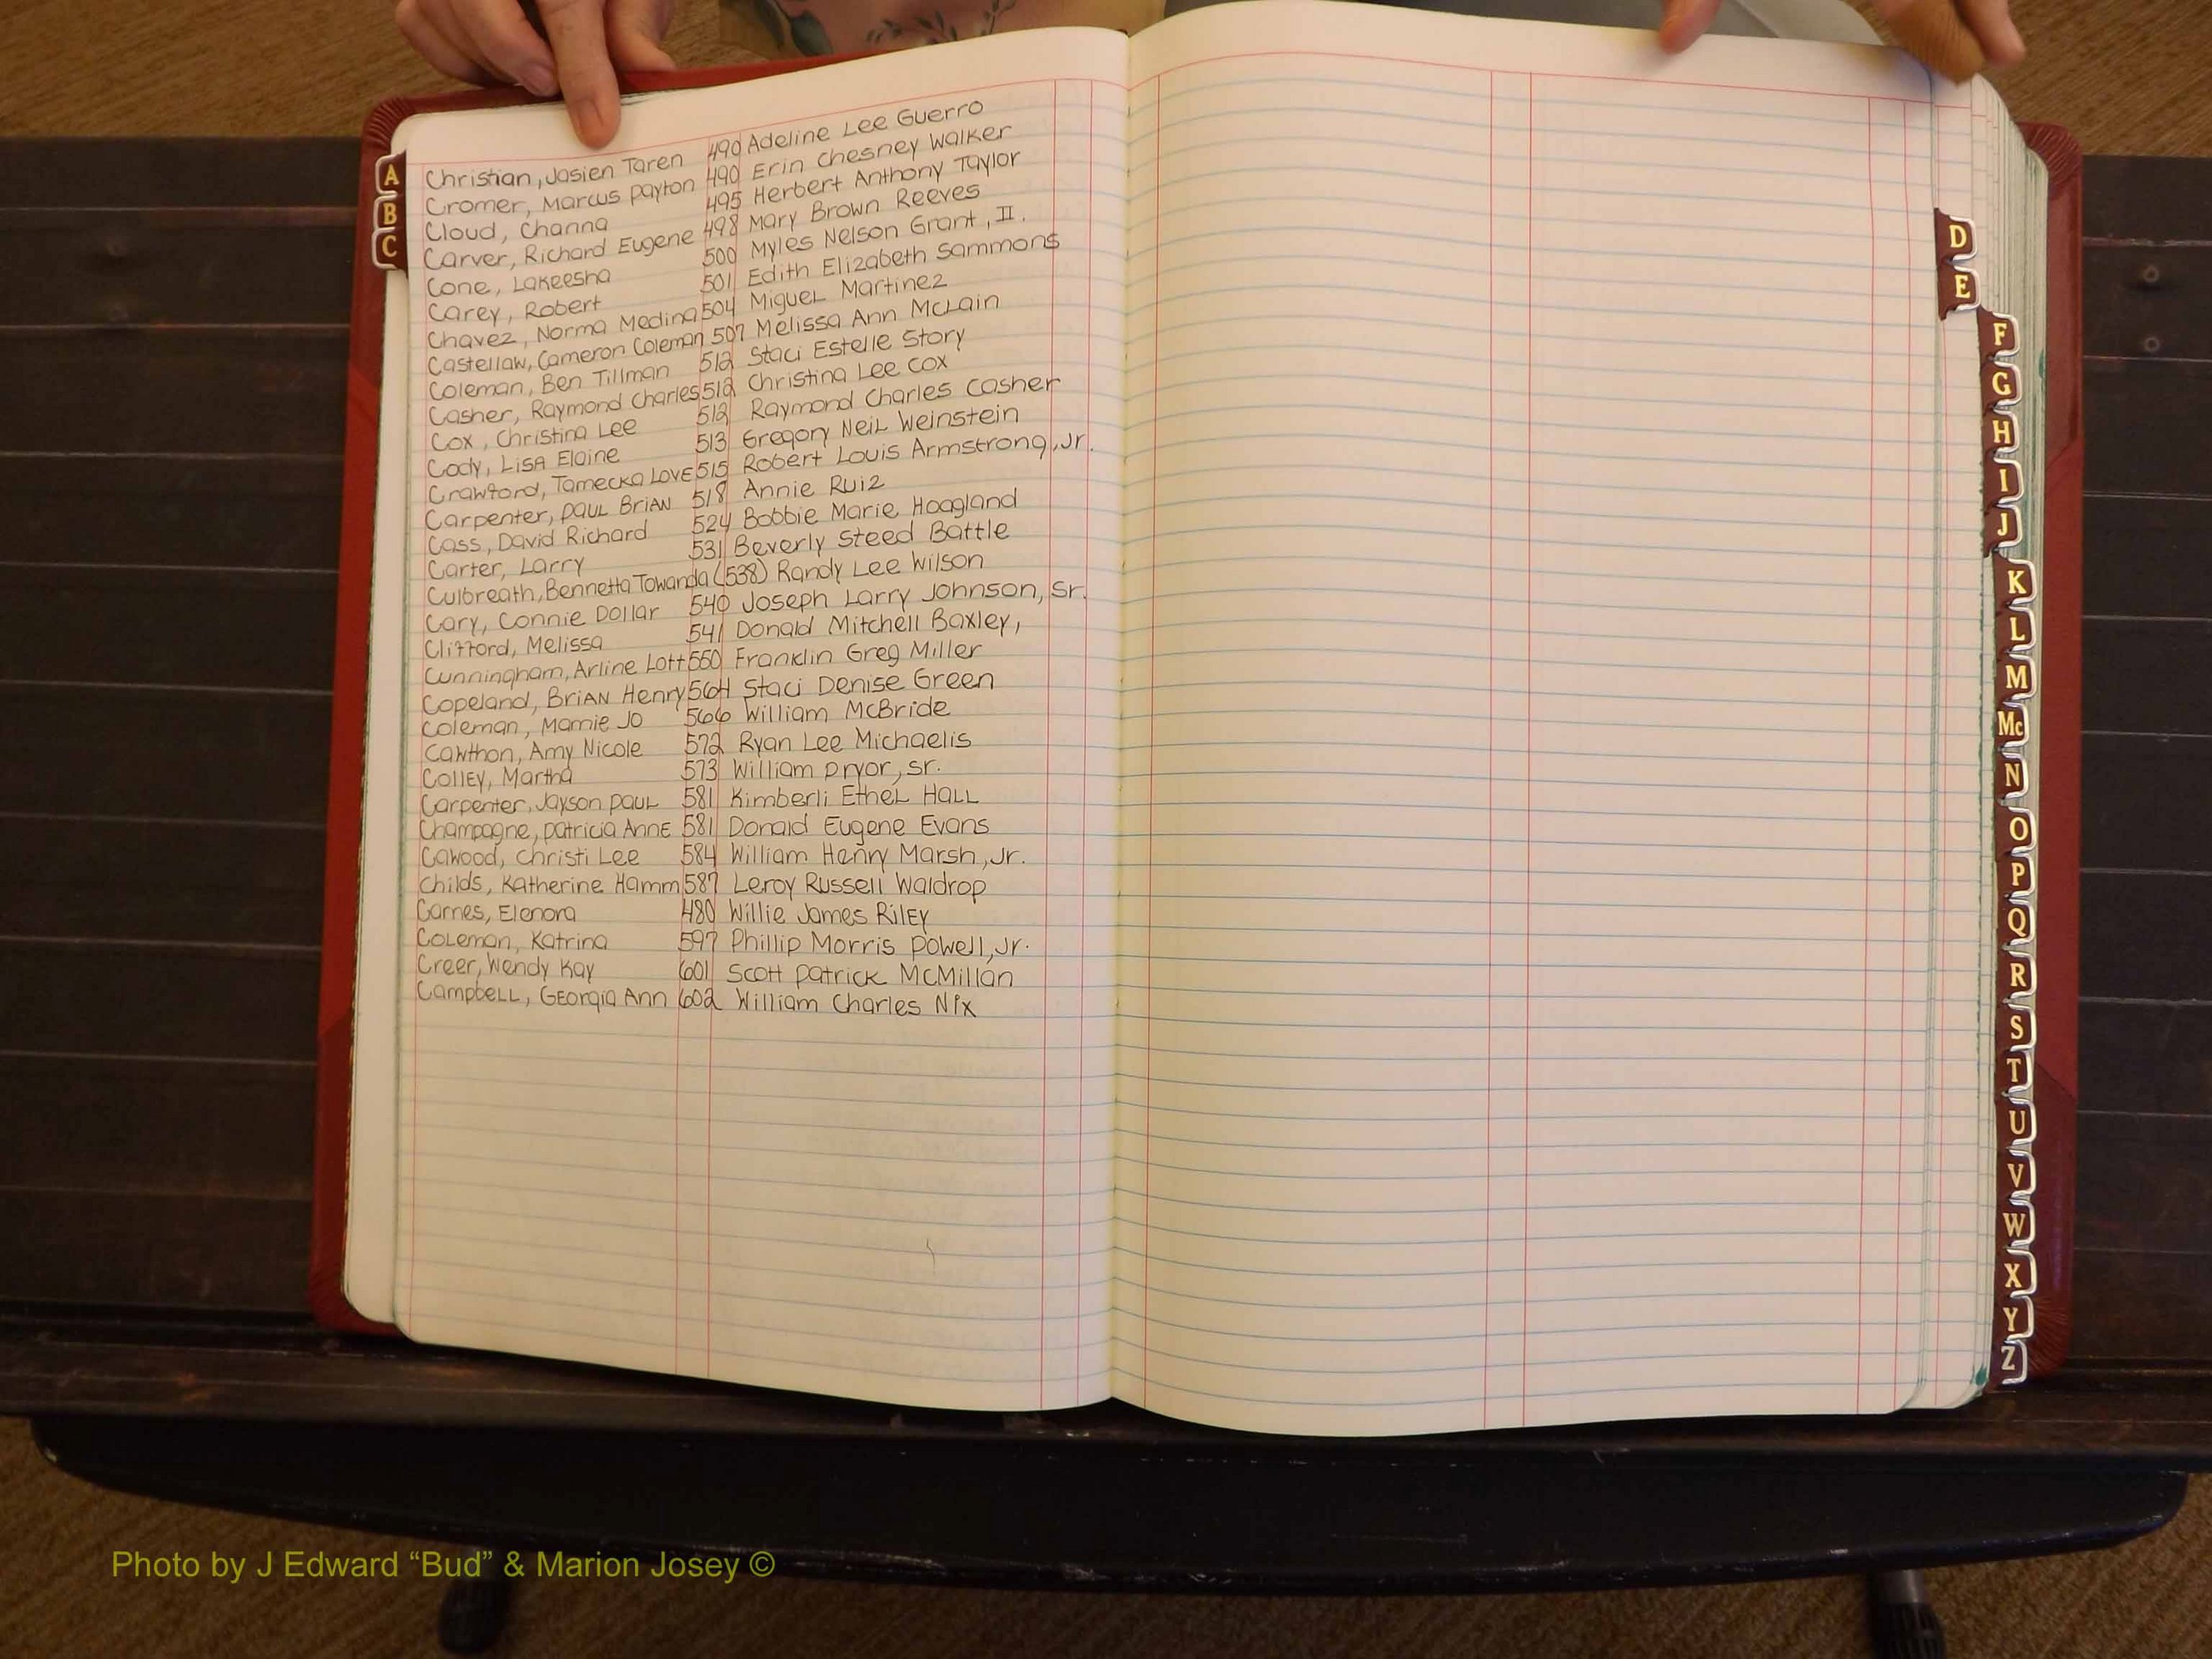 Christian, Jasien Taren 490 Adeline Lee Guerro
Cromer, Marcus Payton 490 Erin Chesney Walker
Cloud, Channa 495 Herbert Anthony Taylor
Carver, Richard Eugene 498 Mary Brown Reeves
Cone, Lakeesha 500 Myles Nelson Grant, II.
Carey, Robert 501 Edith Elizabeth Sammons
Chavez, Norma Medina 504 Miguel Martinez
Castellaw, Cameron Coleman 507 Melissa Ann McLain
Coleman, Ben Tillman 512 Staci Estelle Story
Casher, Raymond Charles 512 Christina Lee Cox
Cox, Christina Lee 512 Raymond Charles Casher
Cody, Lisa Elaine 513 Gregory Neil Weinstein
Crawford, Tamecka Love 515 Robert Louis Armstrong, Jr.
Carpenter, Paul Brian 518 Annie Ruiz
Cass, David Richard 524 Bobbie Marie Hoagland
Carter, Larry 531 Beverly Steed Battle
Culbreath, Bennetta Towanda (538) Randy Lee Wilson
Cary, Connie Dollar 540 Joseph Larry Johnson, Sr.
Clifford, Melissa 541 Donald Mitchell Baxley,
Cunningham, Arline Lott 550 Franklin Greg Miller
Copeland, Brian Henry 564 Staci Denise Green
Coleman, Mamie Jo 566 William McBride
Cawthon, Amy Nicole 572 Ryan Lee Michaelis
Colley, Martha 573 William Pryor, Sr.
Carpenter, Jayson Paul 581 Kimberli Ethel Hall
Champagne, Patricia Anne 581 Donald Eugene Evans
Cawood, Christi Lee 584 William Henry Marsh, Jr.
Childs, Katherine Hamm 587 Leroy Russell Waldrop
Carnes, Elenora 480 Willie James Riley
Coleman, Katrina 597 Phillip Morris Powell, Jr.
Creer, Wendy Kay 601 Scott Patrick McMillan
Campbell, Georgia Ann 602 William Charles Nix
A
B
C
D
E
F
G
H
I
J
K
L
M
Mc
N
O
P
Q
R
S
T
U
V
W
X
Y
Z
Photo by J Edward “Bud” & Marion Josey ©